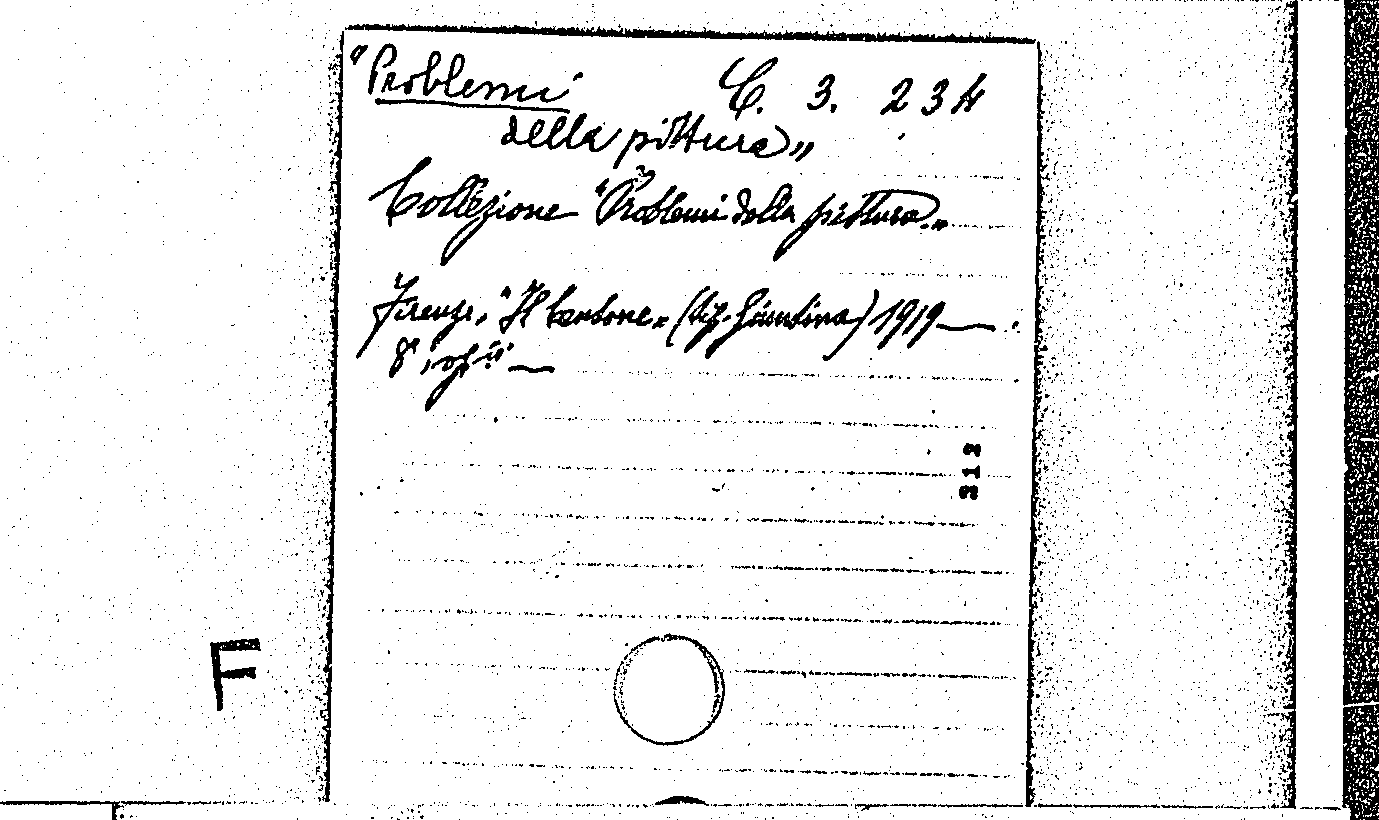 "Problemi C. 3. 234
della pittura„
Collezione "Problemi della pittura.„
Firenze, "Il Cantone„ (tip. Giuntina) 1919 —.
8°,
312
F